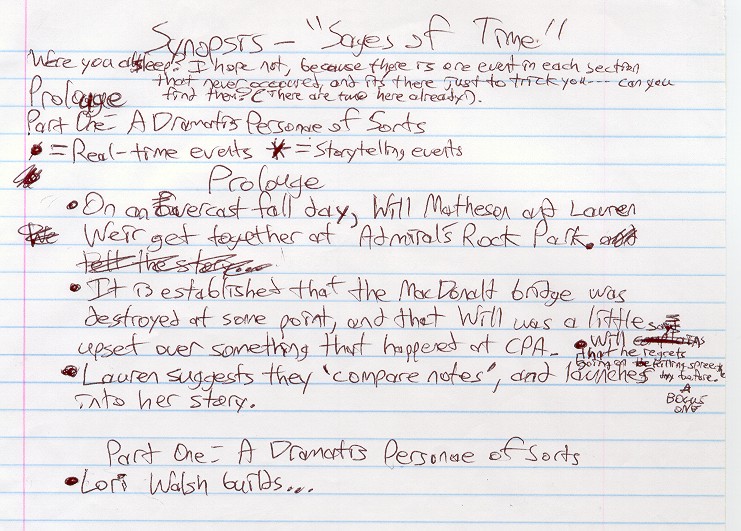 Synopsis - "Sages of Time"
Were you asleep? I hope not, because there is one event in each section
that never occoured, and its there just to trick you --- can you
find them? (There are two here already!).
Prolouge
Part One = A Dramatis Personae of Sorts
• = Real-time events * = Storytelling events
Prolouge
• On an Overcast fall day, Will Matheson and Lauren
Weir get together at Admiral's Rock Park. and
tell the story...
• It is established that the MacDonald bridge was
destroyed at some point, and that Will was a little
upset over something that happened at CPA.
• Will
that he regrets
going on killing spree
day before.
A
BOGUS
ONE
• Lauren suggests they 'compare notes', and launches
into her story.
Part One = A Dramatis Personae of Sorts
• Lori Walsh builds...